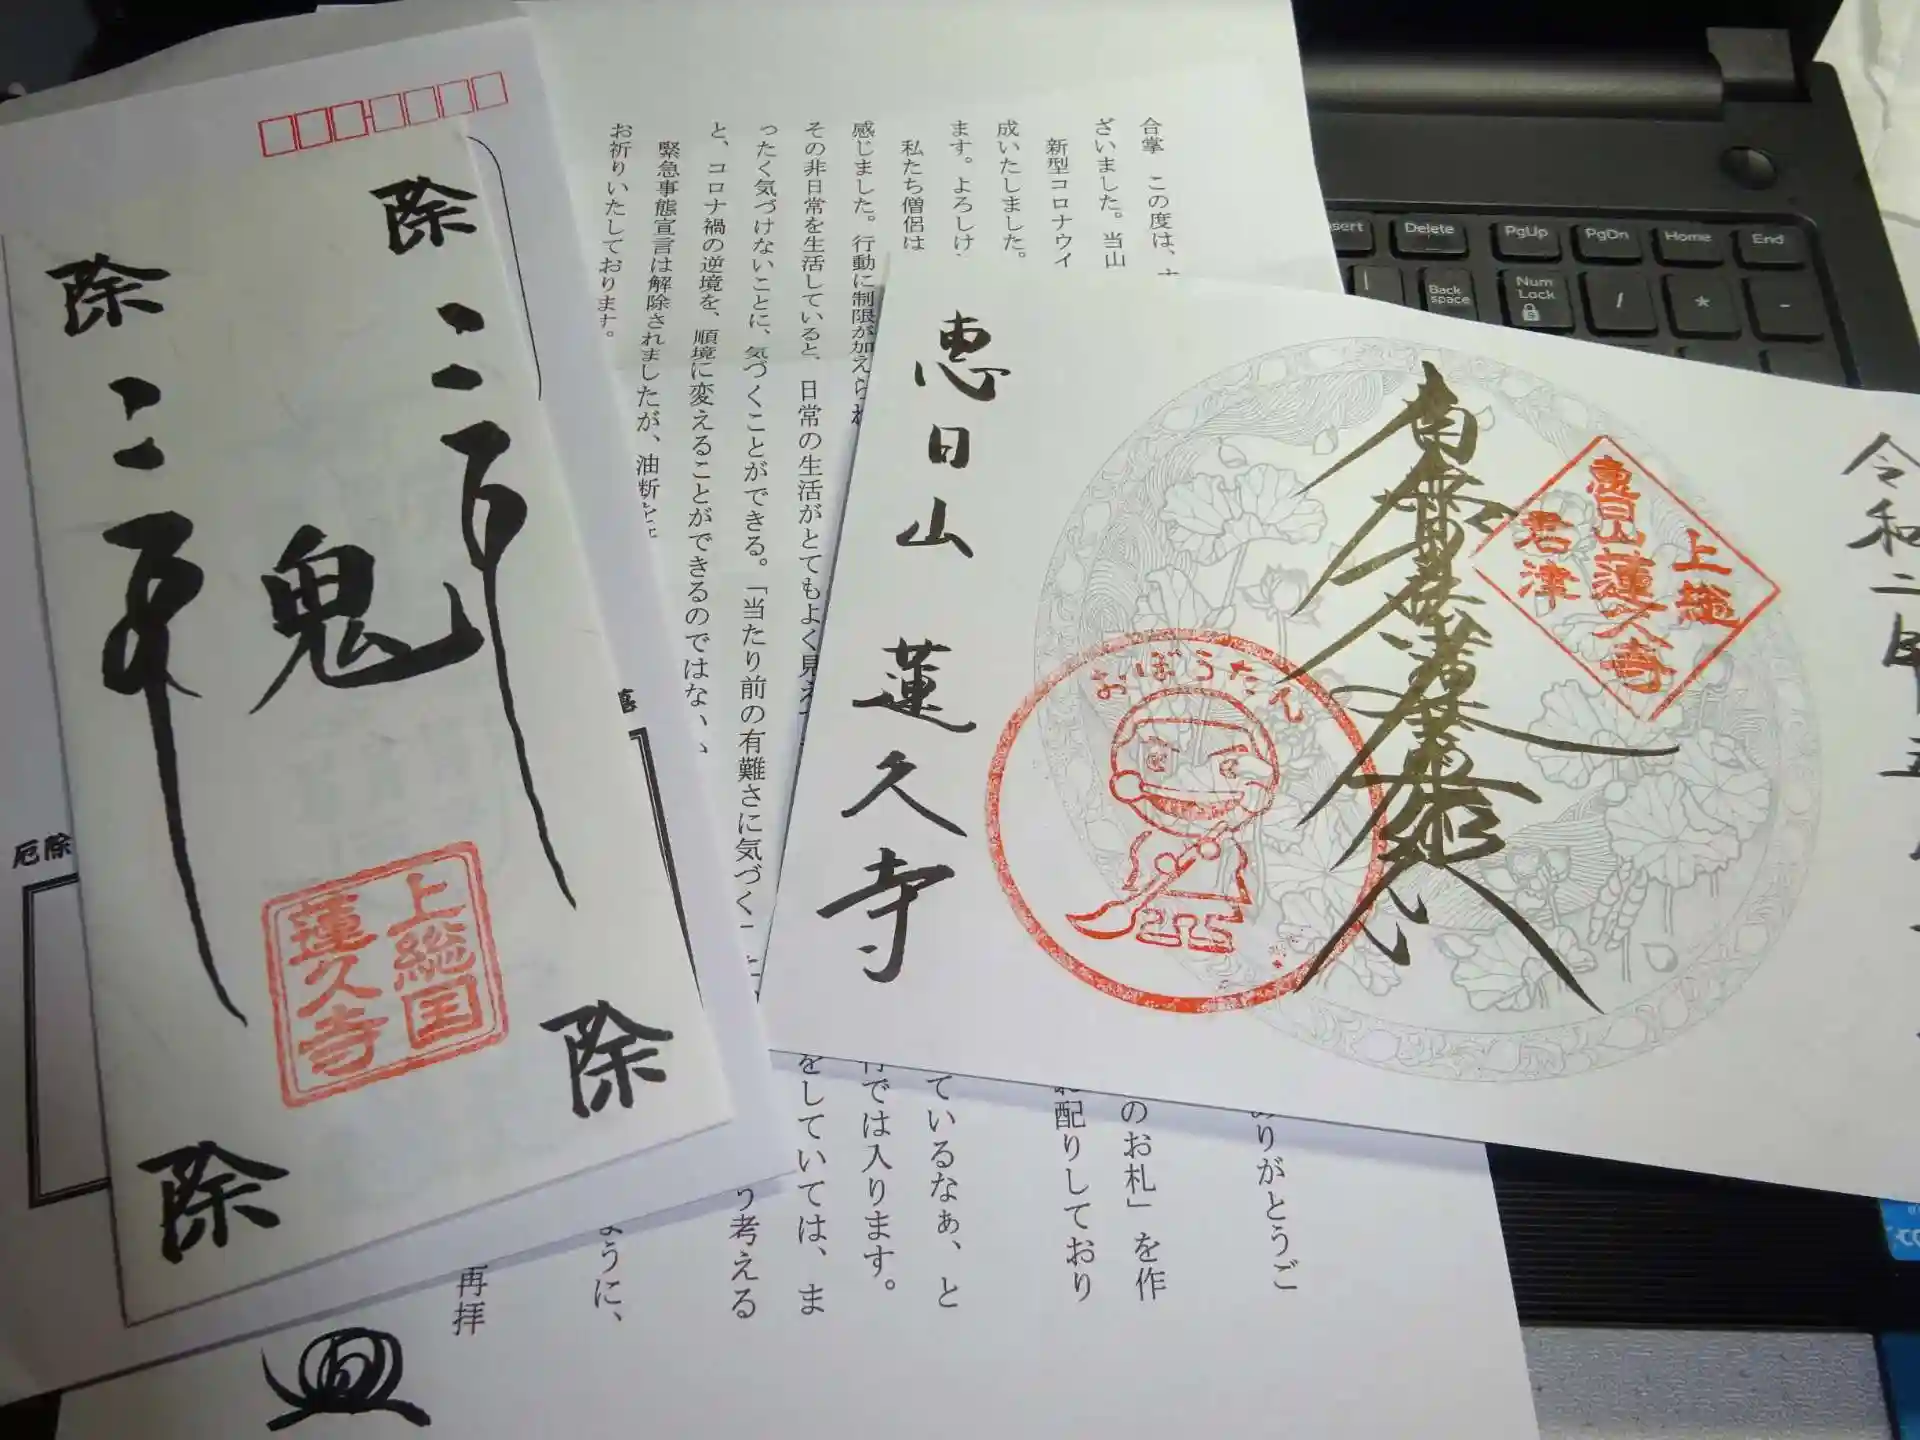 除
除
二
二
鬼
上総国
蓮久寺
除
除
厄除
合掌 この度は、
ざいました。当山
新型コロナウイ
成いたしました。
ます。よろしけ
私たち僧侶は
感じました。行動に制限が加えられ
その非日常を生活していると、日常の生活がとてもよく見えて
ったく気づけないことに、気づくことができる。「当たり前の有難さに気づく
と、コロナ禍の逆境を、順境に変えることができるのではない
緊急事態宣言は解除されましたが、油断を
お祈りいたしております。
ありがとうご
のお札」を作
お配りしており
ているなぁ、と
行では入ります。
をしていては、ま
う考える
ように、
再拝
令和二年五
南無妙法蓮華経
上総
恵日山蓮久寺
君津
おぼうたん
恵日山 蓮久寺
Insert
Delete
PgUp
PgDn
Home
End
Back space
Num Lock
/
*
-